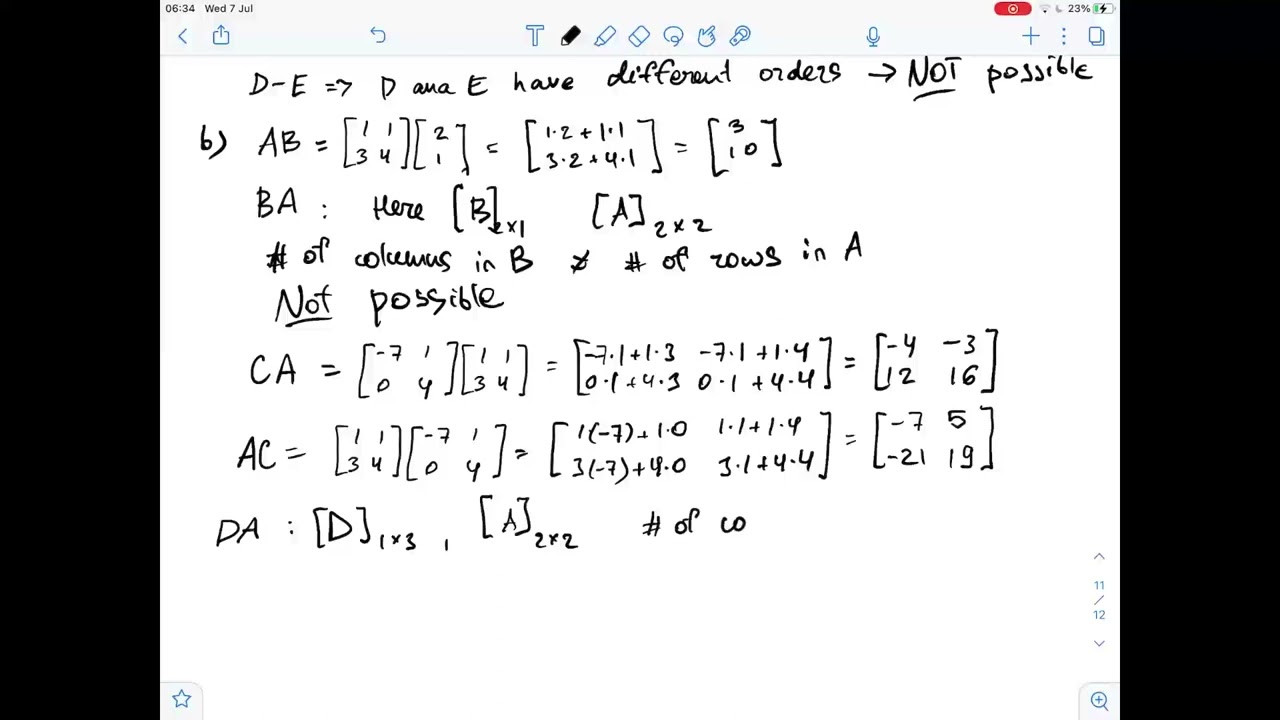 06:34 Wed 7 Jul 23%
D-E => D ana E have different orders → NOT possible
b) AB = [1 1 3 4] [2 1] = [1·2 + 1·1 3·2 + 4·1] = [3 10]
BA : Here [B]2×1 [A]2×2
# of columns in B ≠ # of rows in A
Not possible
CA = [-7 1 0 4] [1 1 3 4] = [-7·1+1·3 -7·1+1·4 0·1+4·3 0·1+4·4] = [-4 -3 12 16]
AC = [1 1 3 4] [-7 1 0 4] = [1(-7)+1·0 1·1+1·4 3(-7)+4·0 3·1+4·4] = [-7 5 -21 19]
DA : [D]1×3 , [A]2×2 # of co
11
/
12